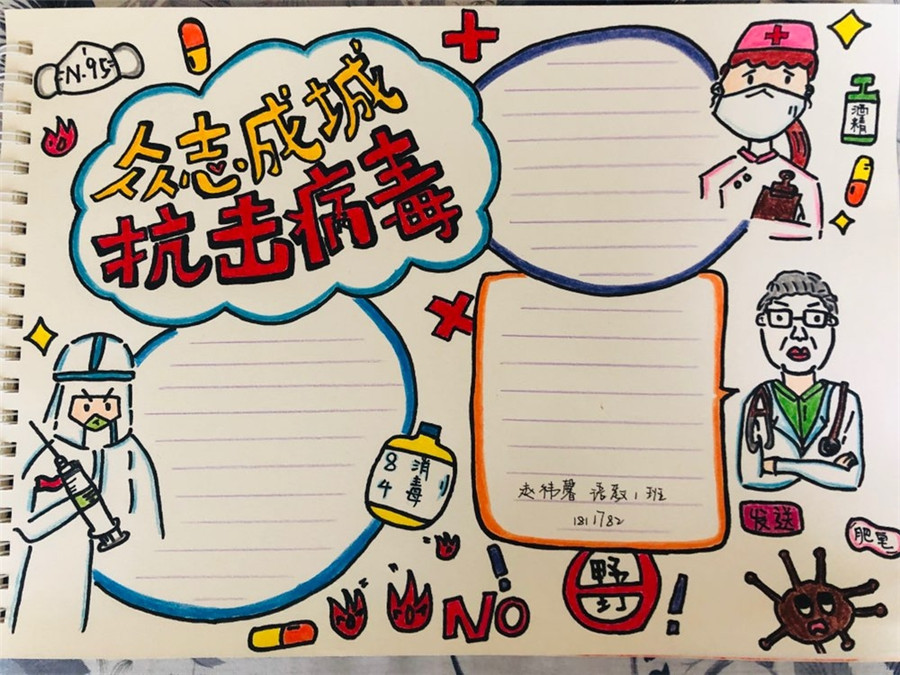 N.95
众志成城
抗击病毒
酒精
84
消毒
赵祎馨 语教1班
1811782
发送
肥皂
野
NO